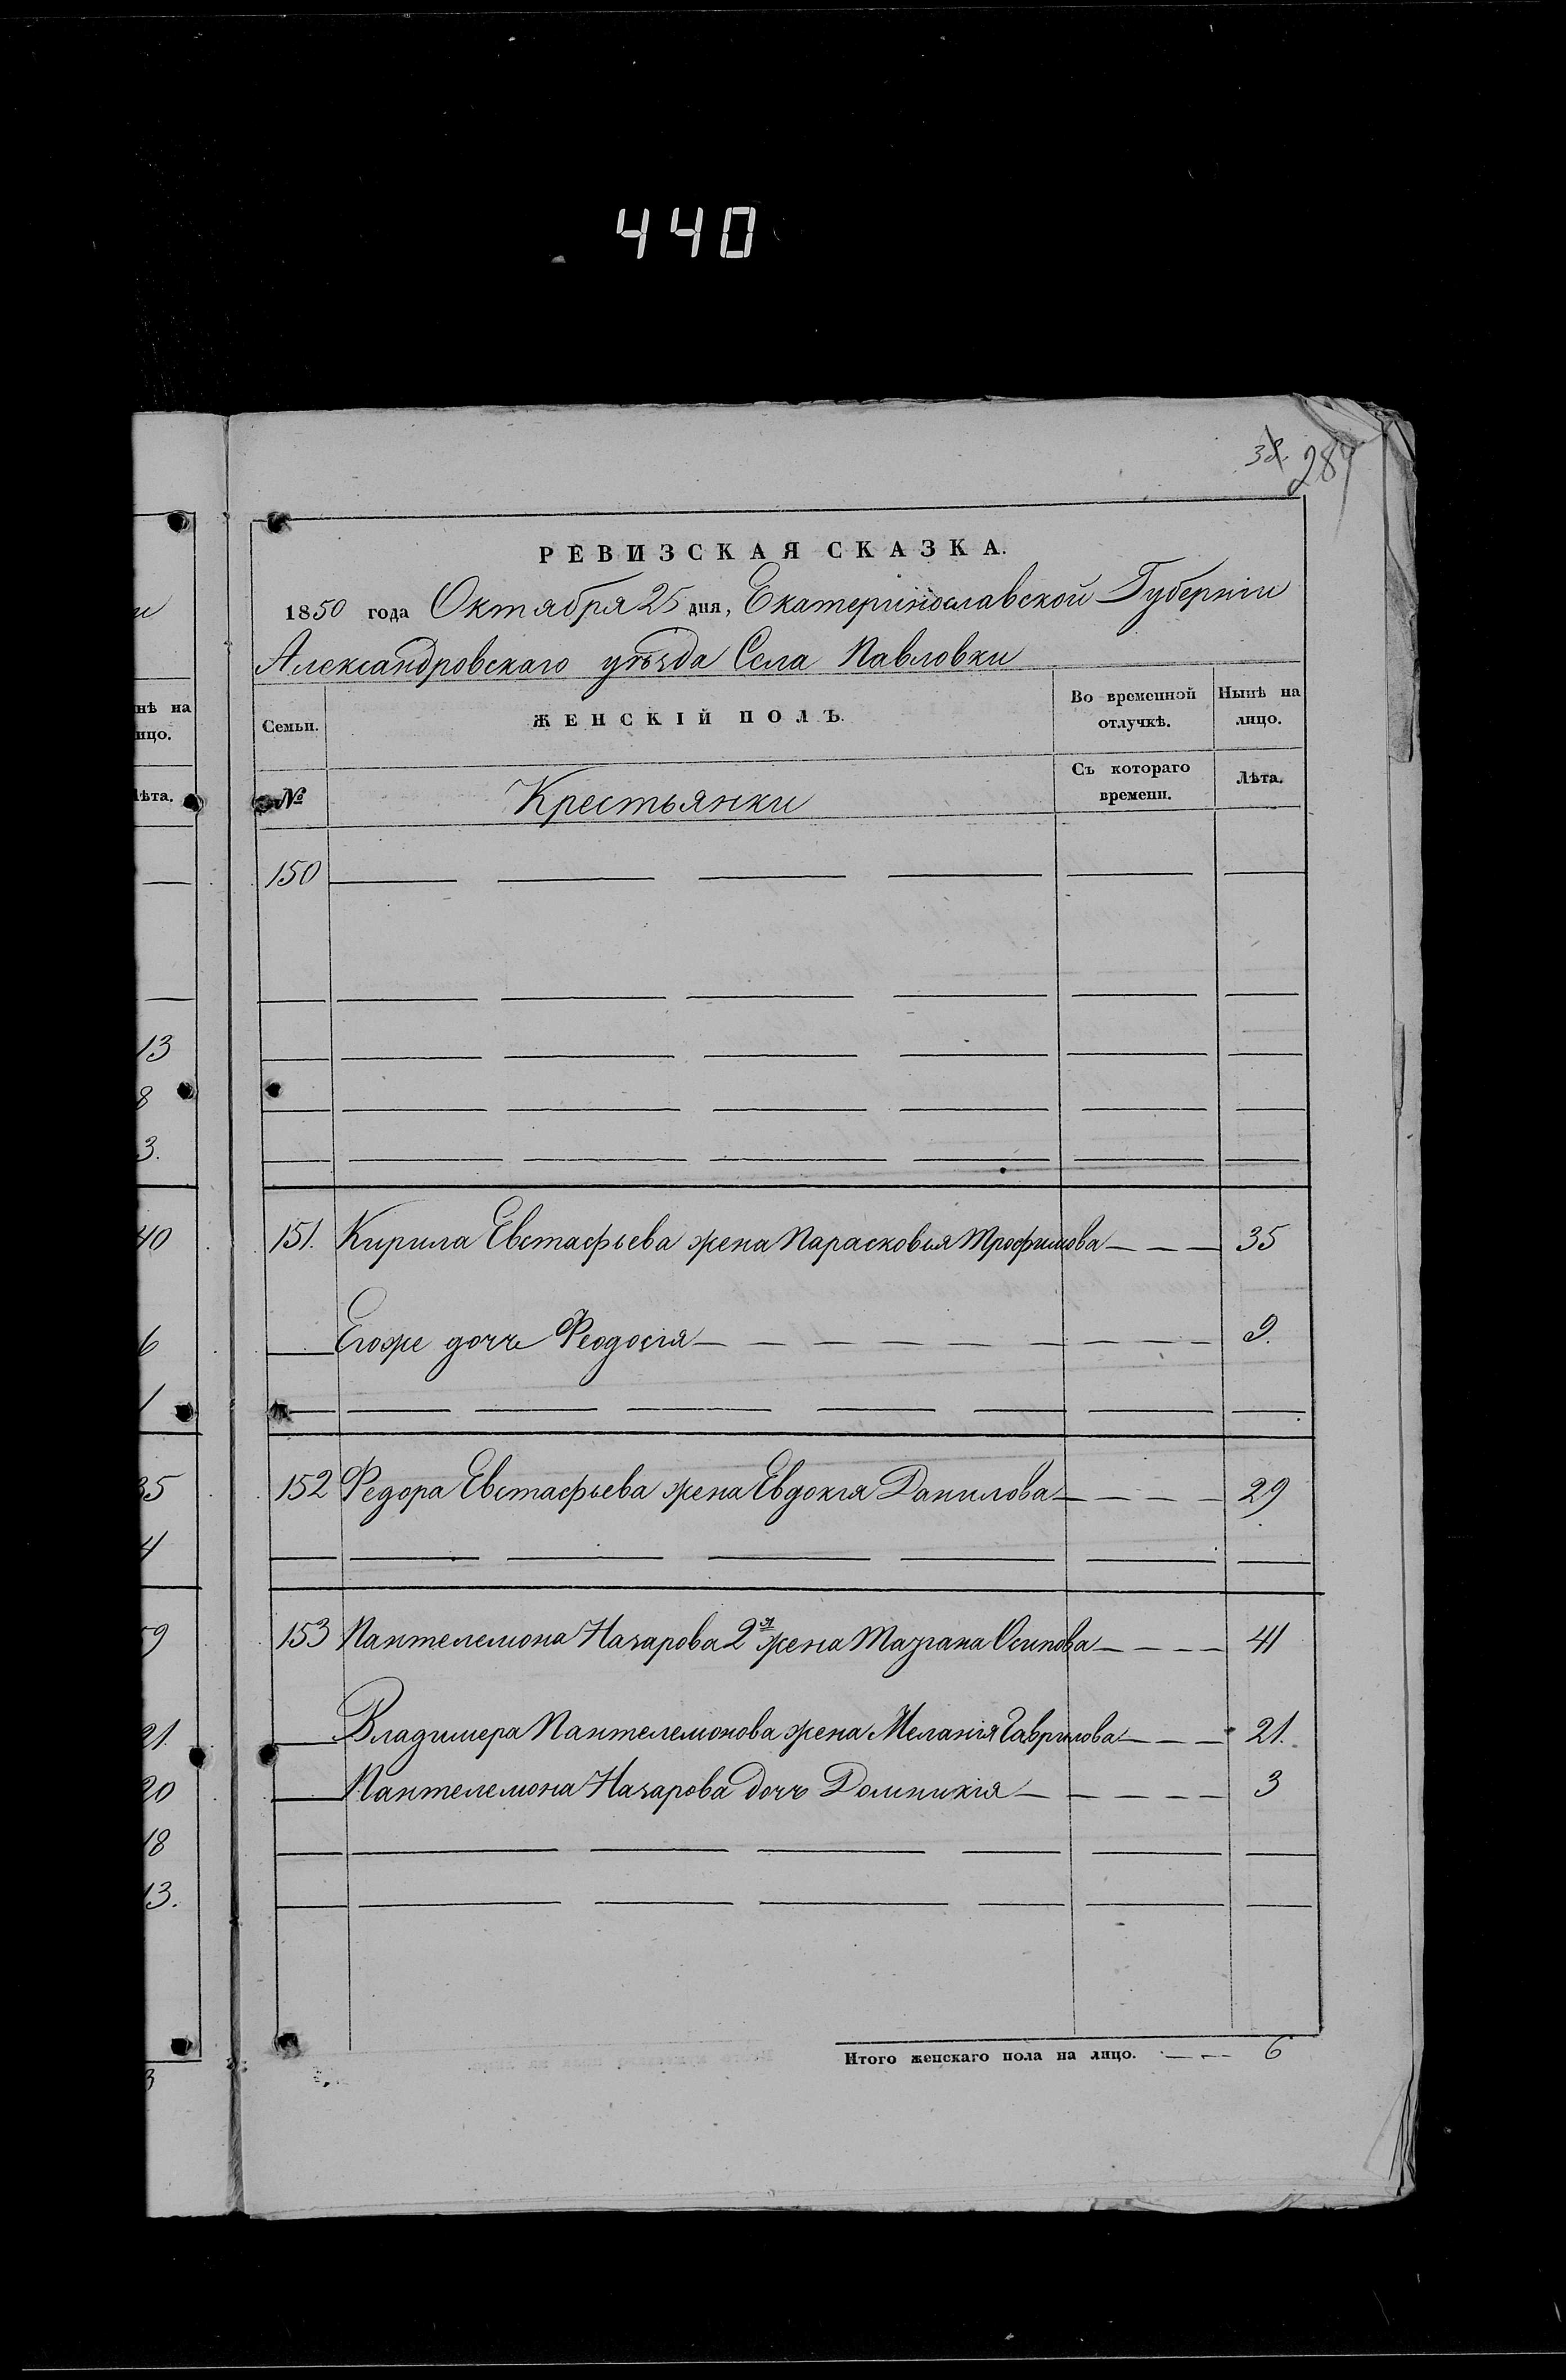 440
38. 287
РЕВИЗСКАЯ СКАЗКА.
1850 года Октября 25 дня, Екатеринославской Губерніи
Александровскаго уѣзда Села Павловки
Семьи. ЖЕНСКІЙ ПОЛЪ. Во временной отлучкѣ. Нынѣ на лицо.
№ Крестьянки Съ котораго времени. Лѣта.
150
151. Кирила Евстафьева жена Парасковья Трофимова 35
Егоже дочь Феодосія 9.
152 Федора Евстафьева жена Евдокія Данилова 29
153 Пантелемона Назарова 2я жена Осипова 41
Владимера Пантелемонова жена Меланія Гаврилова 21.
Пантелемона Назарова дочь Домникія 3
Итого женскаго пола на лицо. 6
и
нѣ на
ицо.
ѣта.
13
8
3.
40
6
1
35
4
59
21.
20
18
13.
3